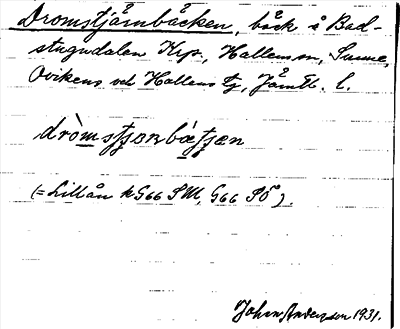 Dromstjärnbäcken, bäck å Bad-
stugudalen Krp, Hallens sn, Sunne,
Ovikens och Hallens tg, Jämtl. l.
dròmstʃɶnbɛ́tʃɶn
(= Lillån k G66 SM, G66 SÖ).
Johan Anderson 1931.